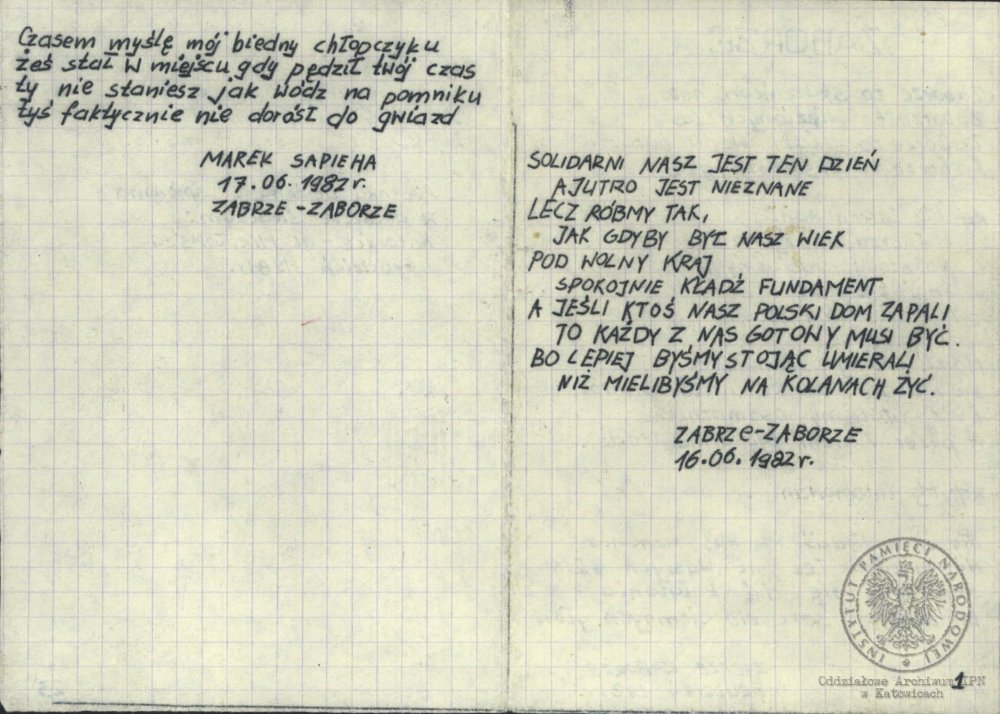 Czasem myślę mój biedny chłopczyku
żeś stał w miejscu gdy pędził twój czas
ty nie staniesz jak wódz na pomniku
tyś faktycznie nie dorósł do gwiazd
MAREK SAPIEHA
17.06.1982r.
ZABRZE-ZABORZE
SOLIDARNI NASZ JEST TEN DZIEŃ
A JUTRO JEST NIEZNANE
LECZ RÓBMY TAK,
JAK GDYBY BYŁ NASZ WIEK
POD WOLNY KRAJ
SPOKOJNIE KŁADŹ FUNDAMENT
A JEŚLI KTOŚ NASZ POLSKI DOM ZAPALI
TO KAŻDY Z NAS GOTOWY MUSI BYĆ.
BO LEPIEJ BYŚMY STOJĄC UMIERALI
NIŻ MIELIBYŚMY NA KOLANACH ŻYĆ.
ZABRZe-ZABORZE
16.06.1982r.
INSTYTUT PAMIĘCI NARODOWEJ
Oddziałowe Archiwum IPN
w Katowicach
1